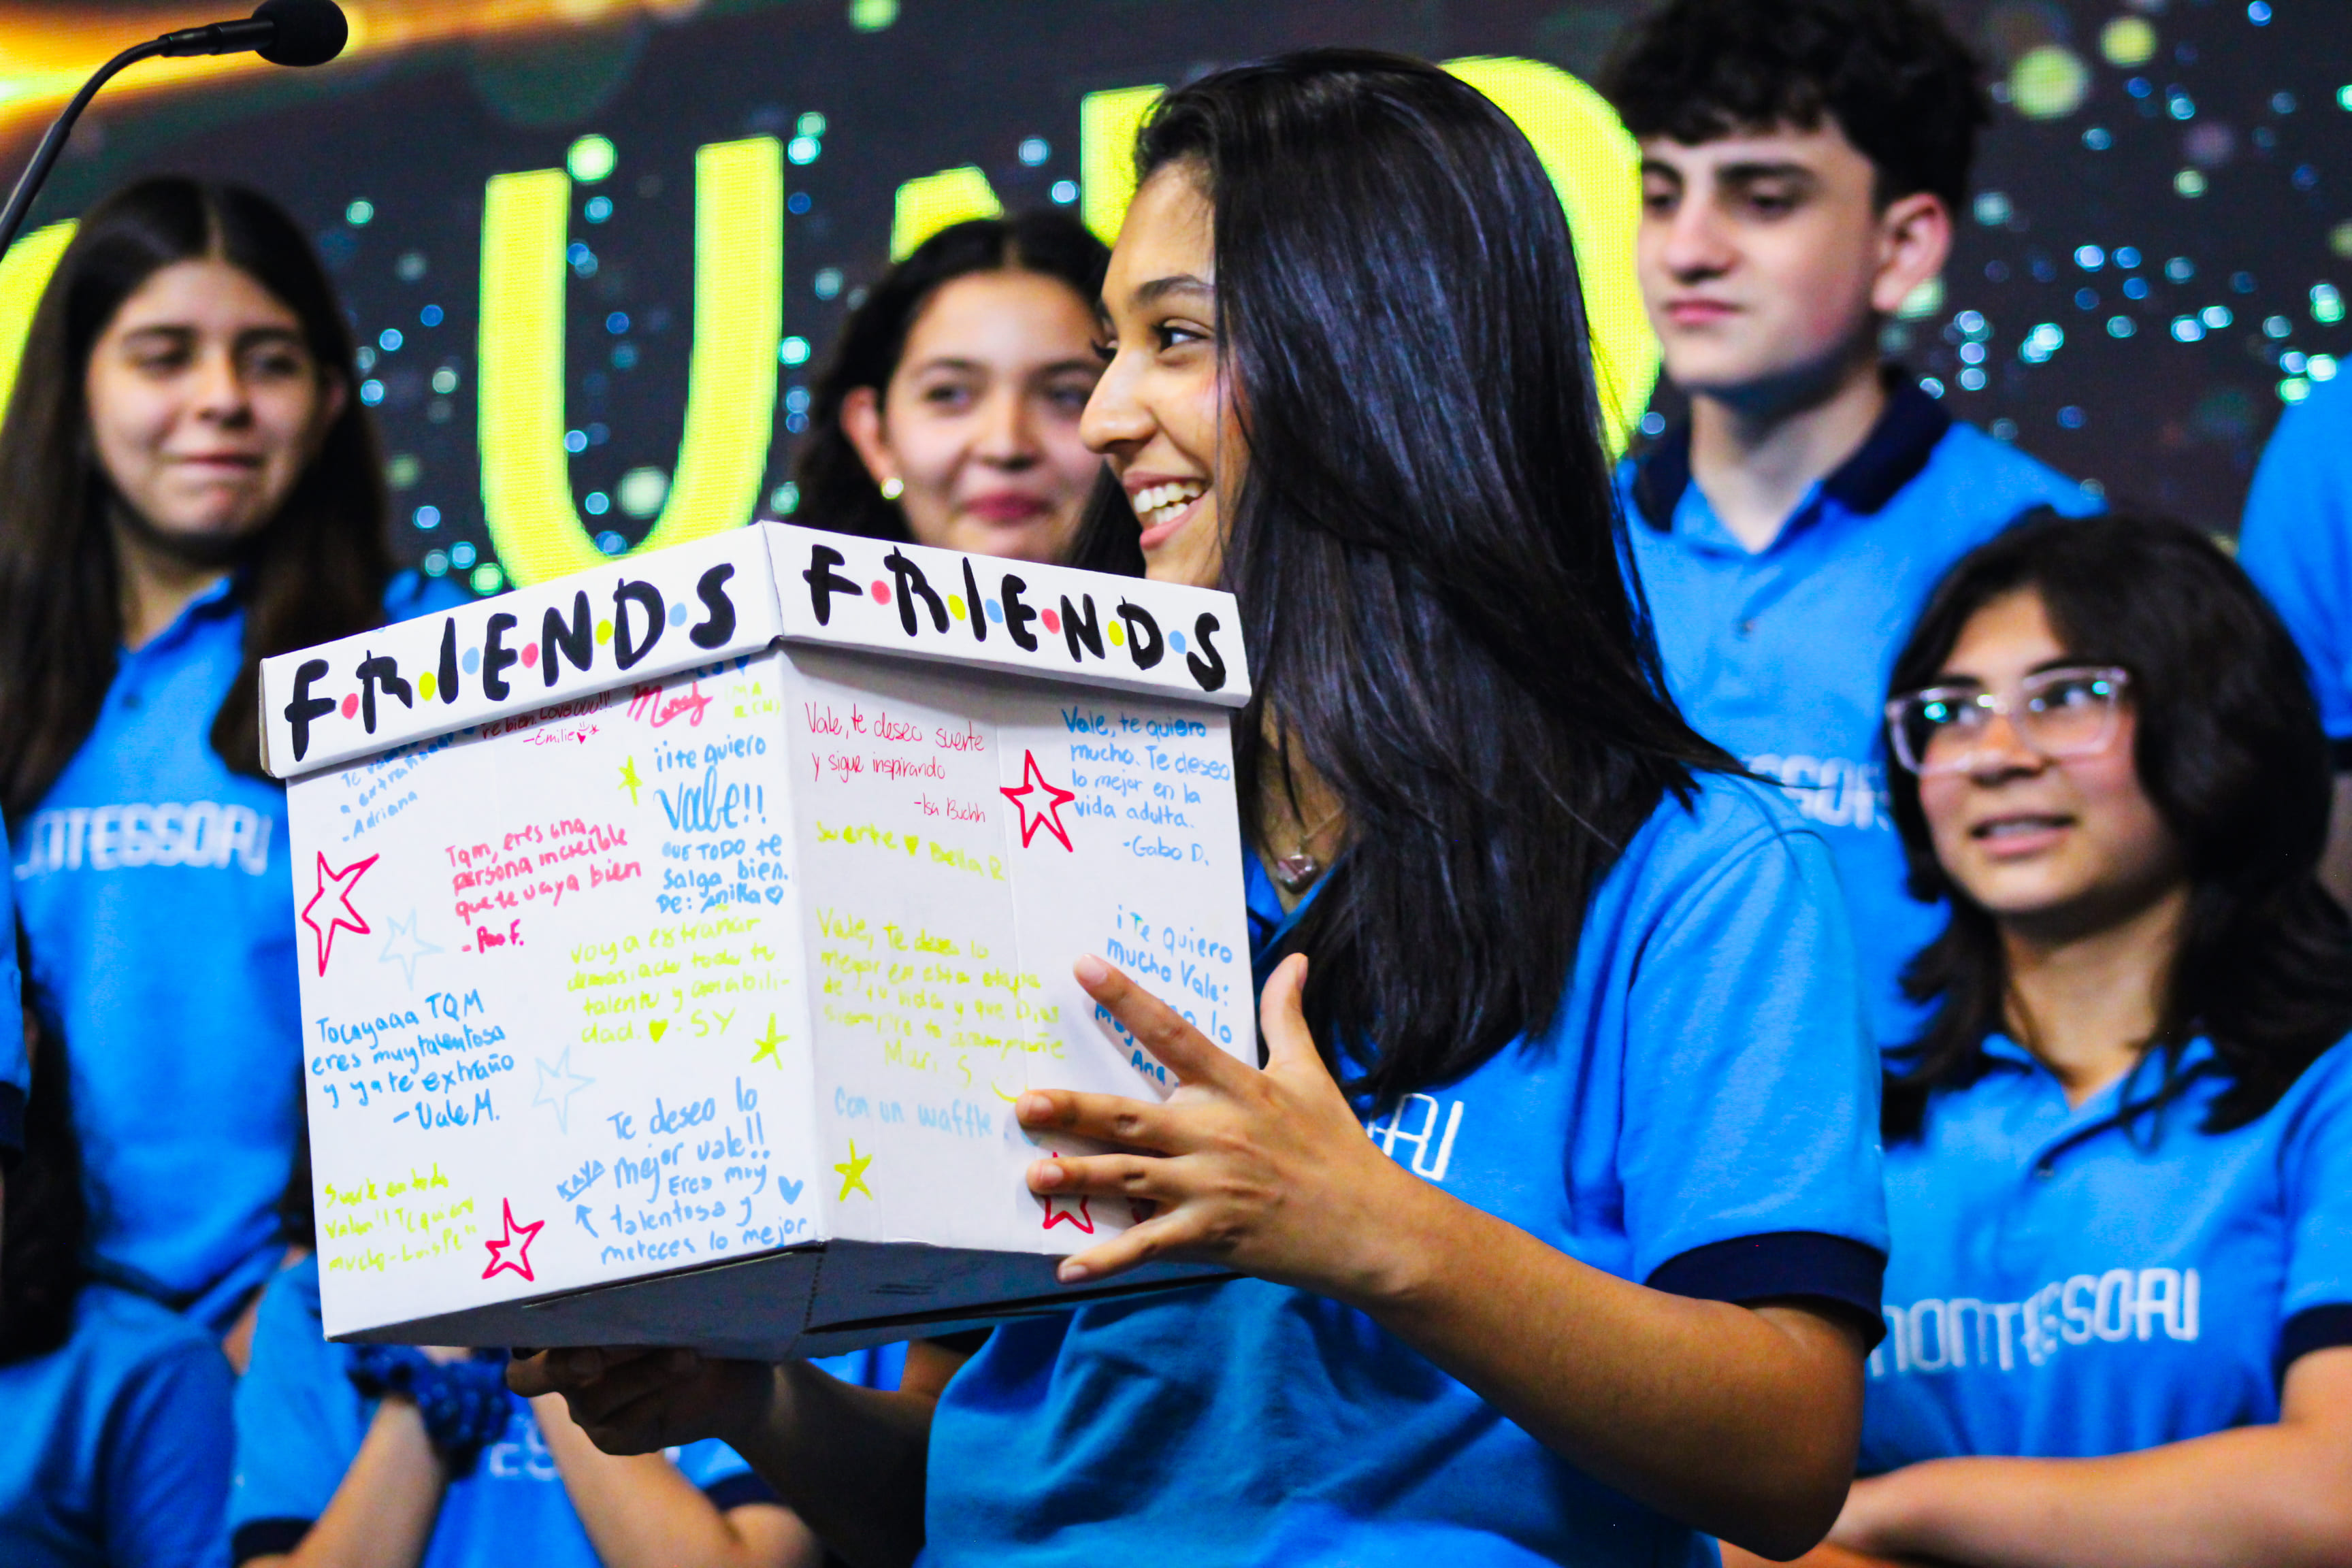 U
F.R.I.E.N.D.S
F.R.I.E.N.D.S
re bien. Loveuuu!!!
-Emilie
Mandy
Te
a extrañar
-Adriana
¡¡te quiero
Vale!!
QUE TODO te
salga bien.
De: Anika
Tqm, eres una
persona increíble
que te vaya bien
- Pao F.
voy a extrañar
demasiado todo tu
talento y amabili-
dad. - SY
Tocayaaa TQM
eres muy talentosa
y ya te extraño
- Vale M.
Te deseo lo
mejor vale!!
Eres muy
talentosa y
mereces lo mejor
KAYA
Suerte en todo
Valen!! Te quiero
mucho-LuisPe"
Vale, te deseo suerte
y sigue inspirando
-Isa Buchh
suerte Bella R
Vale, te deseo lo
mejor en esta etapa
de tu vida y que Dios
siempre te acompañe
Mari. S.
con un waffle
Vale, te quiero
mucho. Te deseo
lo mejor en la
vida adulta.
-Gabo D.
¡Te quiero
mucho Vale:
lo
Ana
MONTESSORI